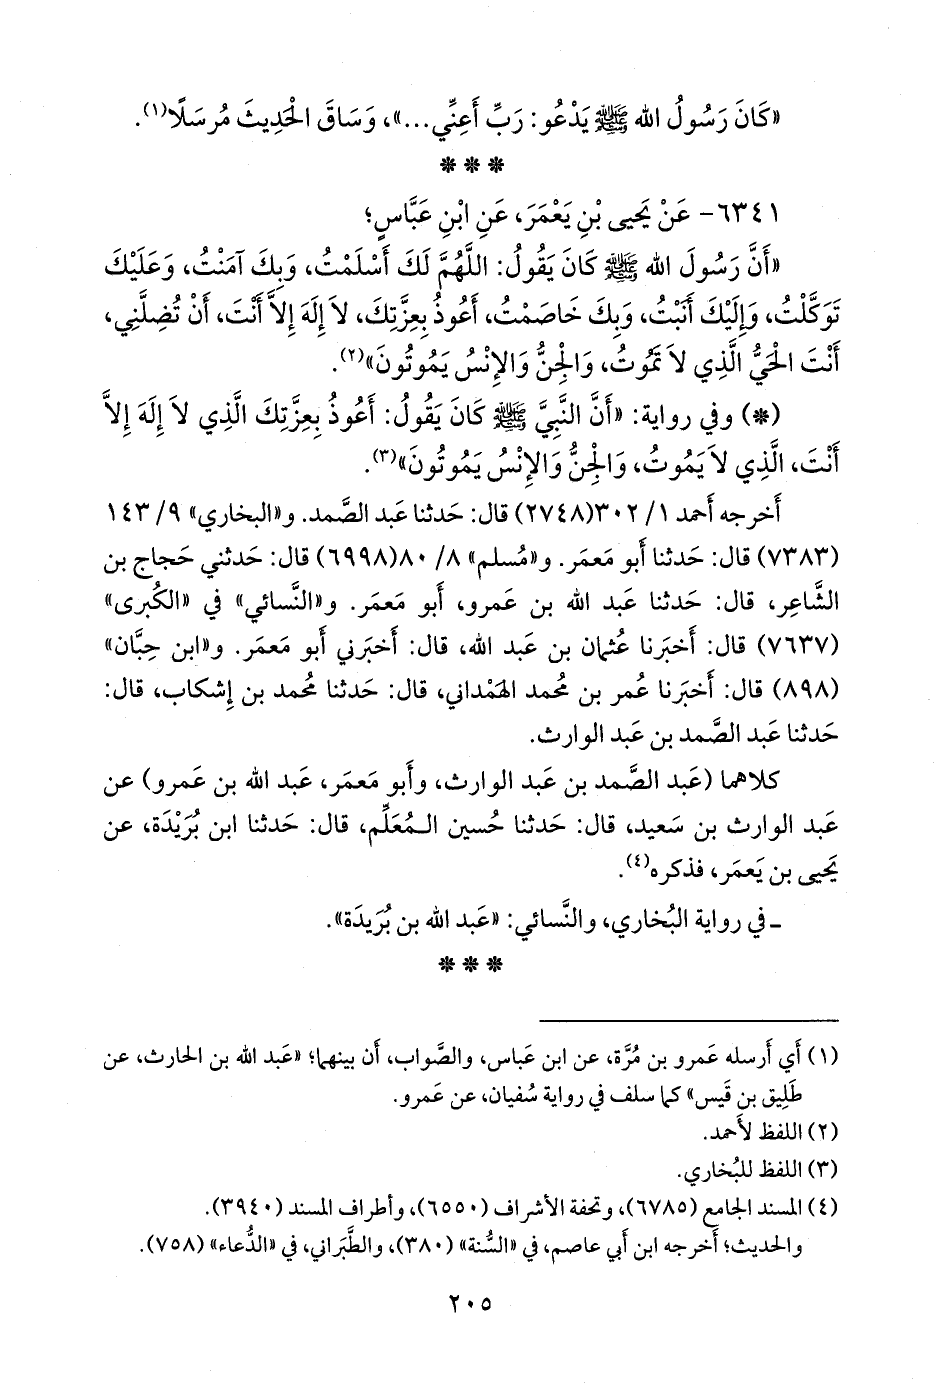 «كَانَ رَسُولُ الله ﷺ يَدْعُو: رَبِّ أَعِنِّي...»، وَسَاقَ الْحَدِيثَ مُرسَلًا(١).
* * *
٦٣٤١- عَنْ يَحيى بْنِ يَعْمَرَ، عَنِ ابْنِ عَبَّاسٍ؛
«أَنَّ رَسُولَ الله ﷺ كَانَ يَقُولُ: اللَّهُمَّ لَكَ أَسْلَمْتُ، وَبِكَ آمَنْتُ، وَعَلَيْكَ
تَوَكَّلْتُ، وَإِلَيْكَ أَنَبْتُ، وَبِكَ خَاصَمْتُ، أَعُوذُ بِعِزَّتِكَ، لاَ إِلَهَ إِلاَّ أَنْتَ، أَنْ تُضِلَّنِي،
أَنْتَ الْحَيُّ الَّذِي لاَ تَمُوتُ، وَالْجِنُّ وَالإِنْسُ يَمُوتُونَ»(٢).
(*) وفي رواية: «أَنَّ النَّبِيَّ ﷺ كَانَ يَقُولُ: أَعُوذُ بِعِزَّتِكَ الَّذِي لاَ إِلَهَ إِلاَّ
أَنْتَ، الَّذِي لاَ يَمُوتُ، وَالْجِنُّ وَالإِنْسُ يَمُوتُونَ»(٣).
أَخرجه أَحمد ١/ ٣٠٢(٢٧٤٨) قال: حَدثنا عَبد الصَّمد. و«البخاري» ٩/ ١٤٣
(٧٣٨٣) قال: حَدثنا أَبو مَعمَر. و«مُسلم» ٨/ ٨٠(٦٩٩٨) قال: حَدثني حَجاج بن
الشَّاعِر، قال: حَدثنا عَبد الله بن عَمرو، أَبو مَعمَر. و«النَّسائي» في «الكُبرى»
(٧٦٣٧) قال: أَخبَرنا عُثمان بن عَبد الله، قال: أَخبَرني أَبو مَعمَر. و«ابن حِبَّان»
(٨٩٨) قال: أَخبَرنا عُمر بن مُحمد الهَمْداني، قال: حَدثنا مُحمد بن إِشكاب، قال:
حَدثنا عَبد الصَّمد بن عَبد الوارث.
كلاهما (عَبد الصَّمد بن عَبد الوارث، وأَبو مَعمَر، عَبد الله بن عَمرو) عن
عَبد الوارث بن سَعيد، قال: حَدثنا حُسين الـمُعَلِّم، قال: حَدثنا ابن بُرَيْدَة، عن
يَحيى بن يَعمَر، فذكره(٤).
ـ في رواية البُخاري، والنَّسائي: «عَبد الله بن بُرَيدَة».
* * *
(١) أَي أَرسله عَمرو بن مُرَّة، عن ابن عَباس، والصَّواب، أَن بينهما؛ «عَبد الله بن الحارث، عن
طَلِيق بن قَيس» كما سلف في رواية سُفيان، عن عَمرو.
(٢) اللفظ لأَحمد.
(٣) اللفظ للبُخاري.
(٤) المسند الجامع (٦٧٨٥)، وتحفة الأشراف (٦٥٥٠)، وأطراف المسند (٣٩٤٠).
والحديث؛ أَخرجه ابن أَبي عاصم، في «السُّنة» (٣٨٠)، والطَّبَراني، في «الدُّعاء» (٧٥٨).
٢٠٥